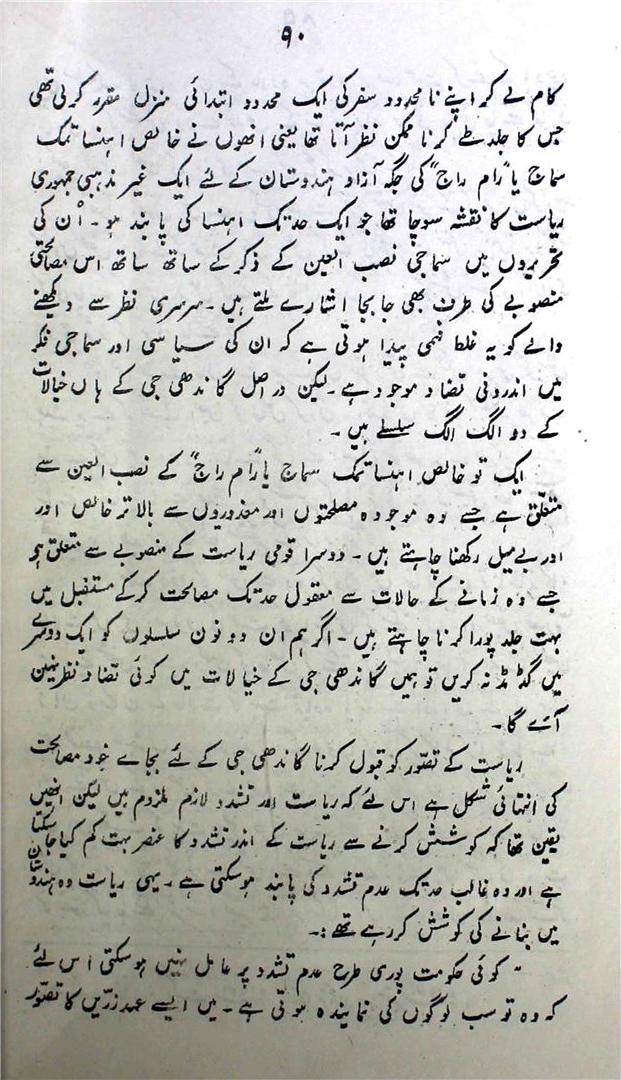 ۹۰
کام لے کر اپنے نا محدود سفر کی ایک محدود ابتدائی منزل مقرر کر لی تھی
جس کا جلد طے کرنا ممکن نظر آتا تھا یعنی انھوں نے خالص اہنسا تمک
سماج یا "رام راج" کی جگہ آزاد ہندوستان کے لئے ایک غیر مذہبی جمہوری
ریاست کا نقشہ سوچا تھا جو ایک حد تک اہنسا کی پابند ہو۔ اُن کی
تحریروں میں سماجی نصب العین کے ذکر کے ساتھ ساتھ اس مصالحتی
منصوبے کی طرف بھی جا بجا اشارے ملتے ہیں۔ سرسری نظر سے دیکھنے
والے کو یہ غلط فہمی پیدا ہوتی ہے کہ ان کی سیاسی اور سماجی فکر
میں اندرونی تضاد موجود ہے۔ لیکن در اصل گاندھی جی کے ہاں خیالات
کے دو الگ الگ سلسلے ہیں۔
ایک تو خالص اہنسا تمک سماج یا "رام راج" کے نصب العین سے
متعلق ہے جسے وہ موجودہ مصلحتوں اور معذوریوں سے بالا تر خالص اور
اور بے میل رکھنا چاہتے ہیں۔ دوسرا قومی ریاست کے منصوبے سے متعلق ہو
جسے وہ زمانے کے حالات سے معقول حد تک مصالحت کرکے مستقبل میں
بہت جلد پورا کرنا چاہتے ہیں۔ اگر ہم ان دونوں سلسلوں کو ایک دوسرے
میں گڈ مڈ نہ کریں تو ہمیں گاندھی جی کے خیالات میں کوئی تضاد نظر نہیں
آئے گا۔
ریاست کے تصوّر کو قبول کرنا گاندھی جی کے لئے بجائے خود مصالحت
کی انتہائی شکل ہے اس لئے کہ ریاست اور تشدد لازم ملزوم ہیں لیکن انھیں
یقین تھا کہ کوشش کرنے سے ریاست کے اندر تشدد کا عنصر بہت کم کیا جا سکتا
ہے اور وہ غالب حد تک عدم تشدد کی پابند ہو سکتی ہے۔ یہی ریاست وہ ہندوستان
میں بنانے کی کوشش کر رہے تھے:۔
"کوئی حکومت پوری طرح عدم تشدد پر عامل نہیں ہو سکتی اس لئے
کہ وہ تو سب لوگوں کی نمایندہ ہوتی ہے۔ میں ایسے عہد زرّیں کا تصوّر